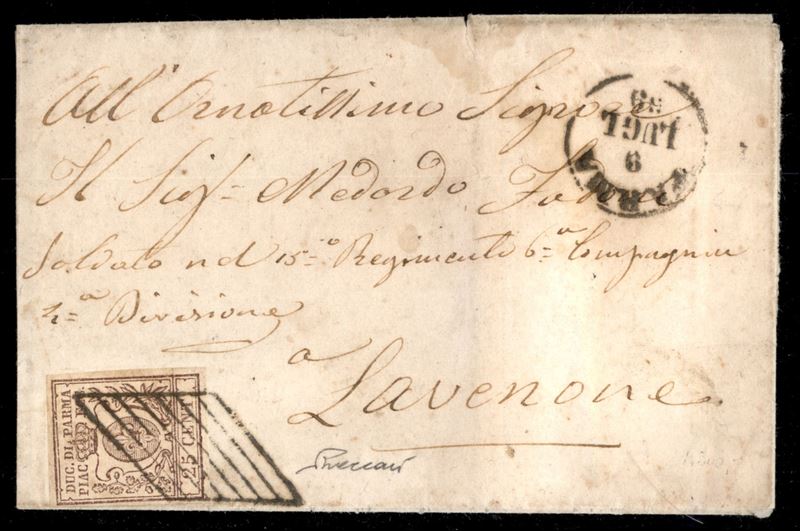 All' Ornatissimo Signore
Il Sig:= Medardo
Soldato nel 15=º Regimento 6=ª Compagnia
4=ª Divisione
a
Lavenone
PARMA
9
LUGL
59
DUC. DI PARMA
PIAC. ECC.
25 CENT.